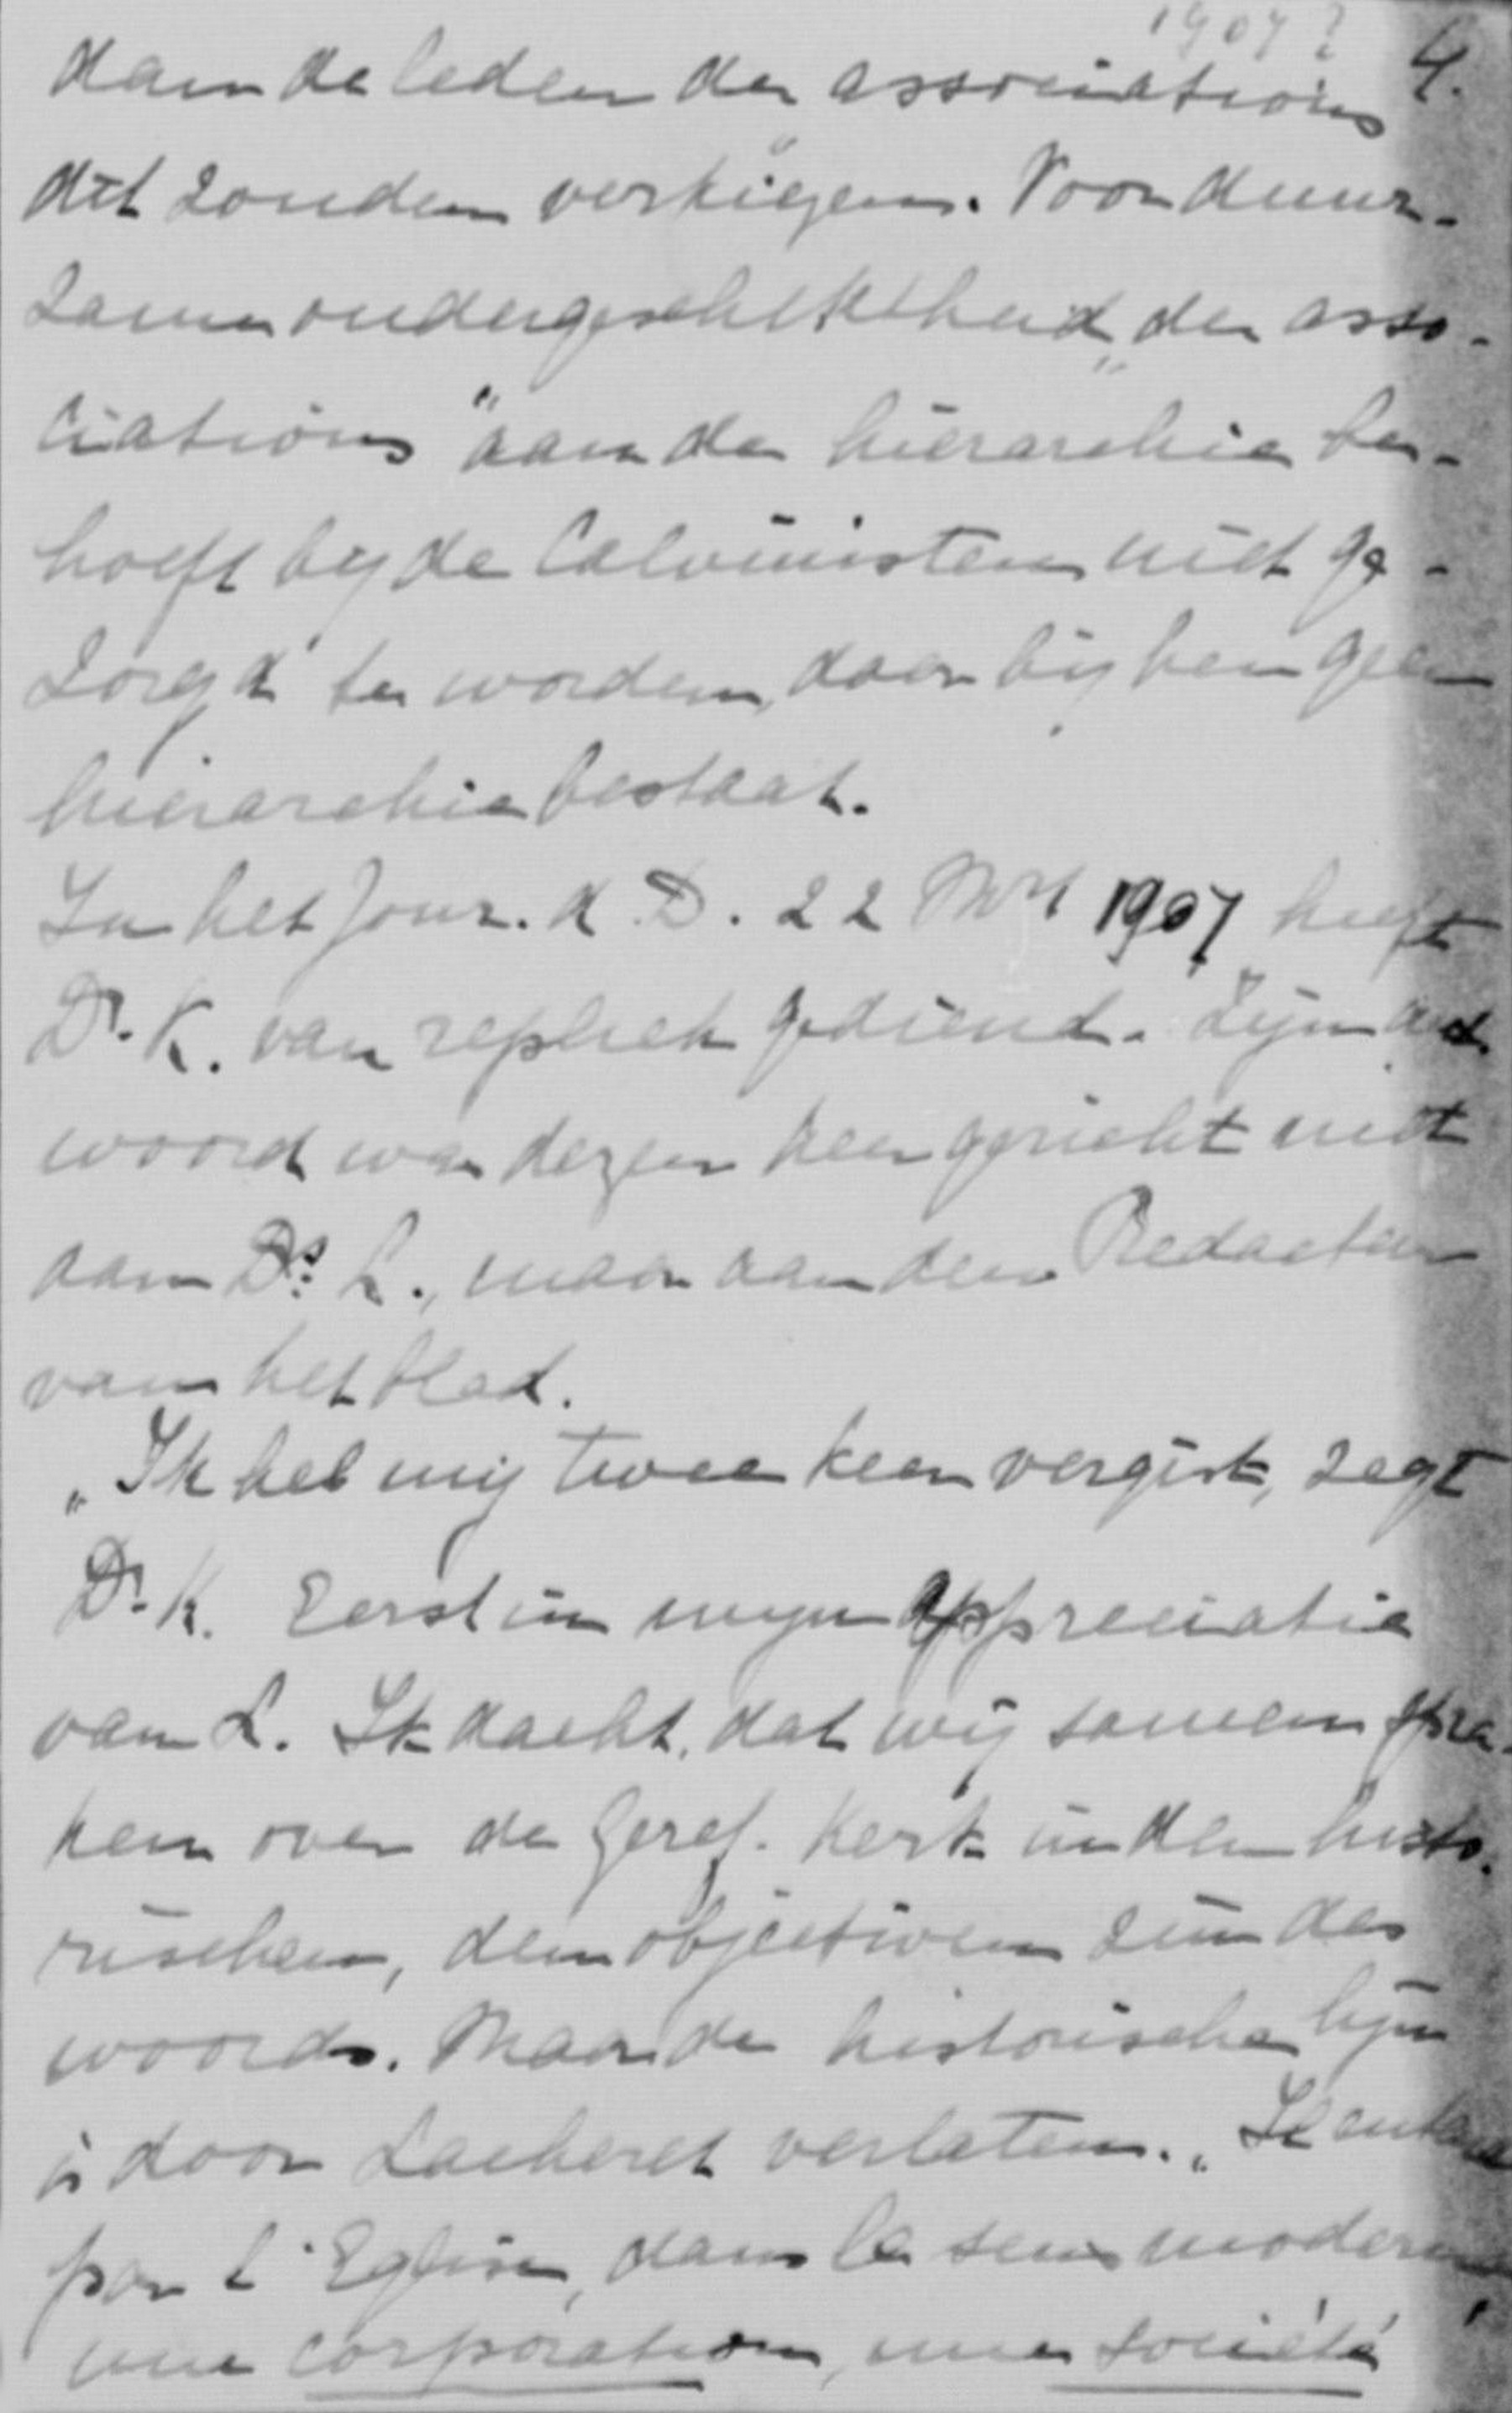 1907? 4.
dan de leden der associations
dit zouden verkiezen. Voor duur-
zame ondergeschiktheid der „asso-
ciations" aan de hierarchie be-
hoeft bij de Calvinisten niet ge-
zorgd te worden, daar bij hen geen
hierarchie bestaat.
In het Jour. d. D. 22 Mrt 1907 heeft
Dr. K. van repliek gediend. Zijn ant
woord was dezen keer gericht niet
aan Ds. L., maar aan den Redacteur
van het blad.
„Ik heb mij twee keer vergist, zegt
Dr. K. Eerst in mijn appreciatie
van L. Ik dacht, dat wij samen spra-
ken over de Geref. Kerk in den histo-
rischen, den objectieven zin des
woords. Maar de historische lijn
is door Lacheret verlaten. „Il entend
par l'Eglise, dans le sens moderne,
une corporation, une société